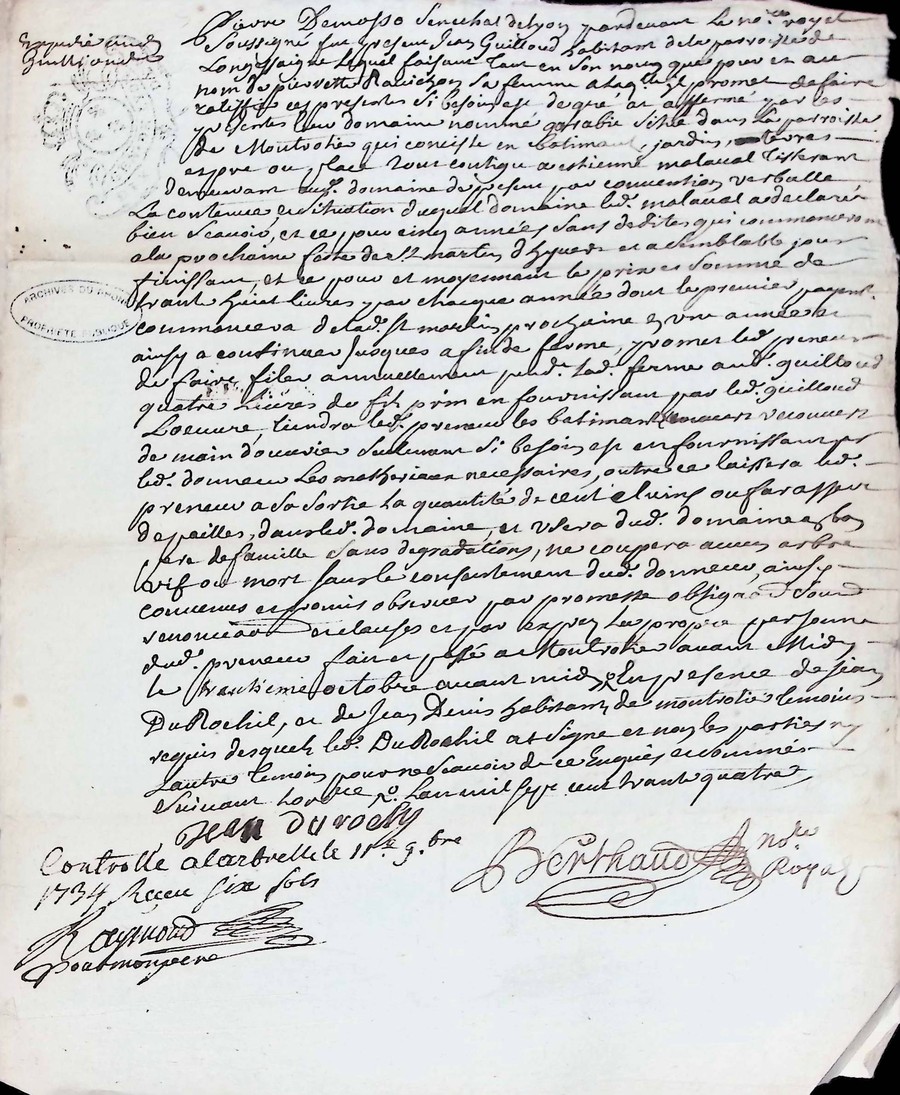 Expedié aud.
Guilloud
Pierre Demasso Senechal de Lyon pardevant Le no.re royal
Soussigné fut present Jean Guilloud habitant de la parroisse de
Longessaigne Lequel faisant tant en Son nom que pour et au
nom de pierrette Sa femme a laq.lle Il promet de faire
ratiffié ces presentes Si besoin est de gré at affermé par les
presentes Un domaine nommé Situé dans La parroisse
de Montrotié qui consiste en batiments, jardin, terres
et pré ou place tout contigu a estienne malaval tisserant
demeurant aud. domaine de present par convention verballe
La contenue et situation duquel domaine led. malaval a declaré
bien Scavoir, et ce pour cinq années Sans dedites qui commanceront
a la prochaine feste de St martin d'hyvert et a Semblable jour
finissant, et ce pour et moyennant le prix et Somme de
trant huit livres par chacque année dont le premier payem.t
commancera de lad. St martin prochaine en une année et
ainsy a continuer Jusques a fin de ferme, promet led. preneur
de faire filer annuellement pend.t lad. ferme aud. guilloud
quatre Livres de fil prim en fournissant par led. guilloud
Loeuvre, tiendra led. preneur les batiments recouvert
de main d'ouvrier Seulement Si besoin est en fournissant par
led. donneur Les matheriaux necessaires, outre ce laissera led.
preneur a Sa Sortie La quantité de cent cluins ou farasses
de pailles, dans led. domaine, et usera dud. domaine en bon
pere de famille Sans degradations, ne coupera aucun arbre
vif ou mort Sans le consentement dud. donneur, ainsy
convenus et promis observer par promesse obligaon Soum.on
renonceaon et clauses et par exprés La propre personne
dud. preneur fait et passé a Montrotié avant Midy
le trantieme octobre avant midy En presence de Jean
DuRochil, et de Jean Denis habitants de montrotié temoins
requis desquels led. DuRochil at Signé et non les parties ny
L'autre temoin pour ne Scavoir de ce Enquis et Sommés
Suivant Lordce Lan mil sept cent trant quatre
Jean durochil
Controllé a larbrelle le 11.e 9.bre
1734 Receu six sols
Raymond
pour mon pere
Berthaud no.re
Royal
ARCHIVES DU RHONE
PROPRIÉTÉ PUBLIQUE